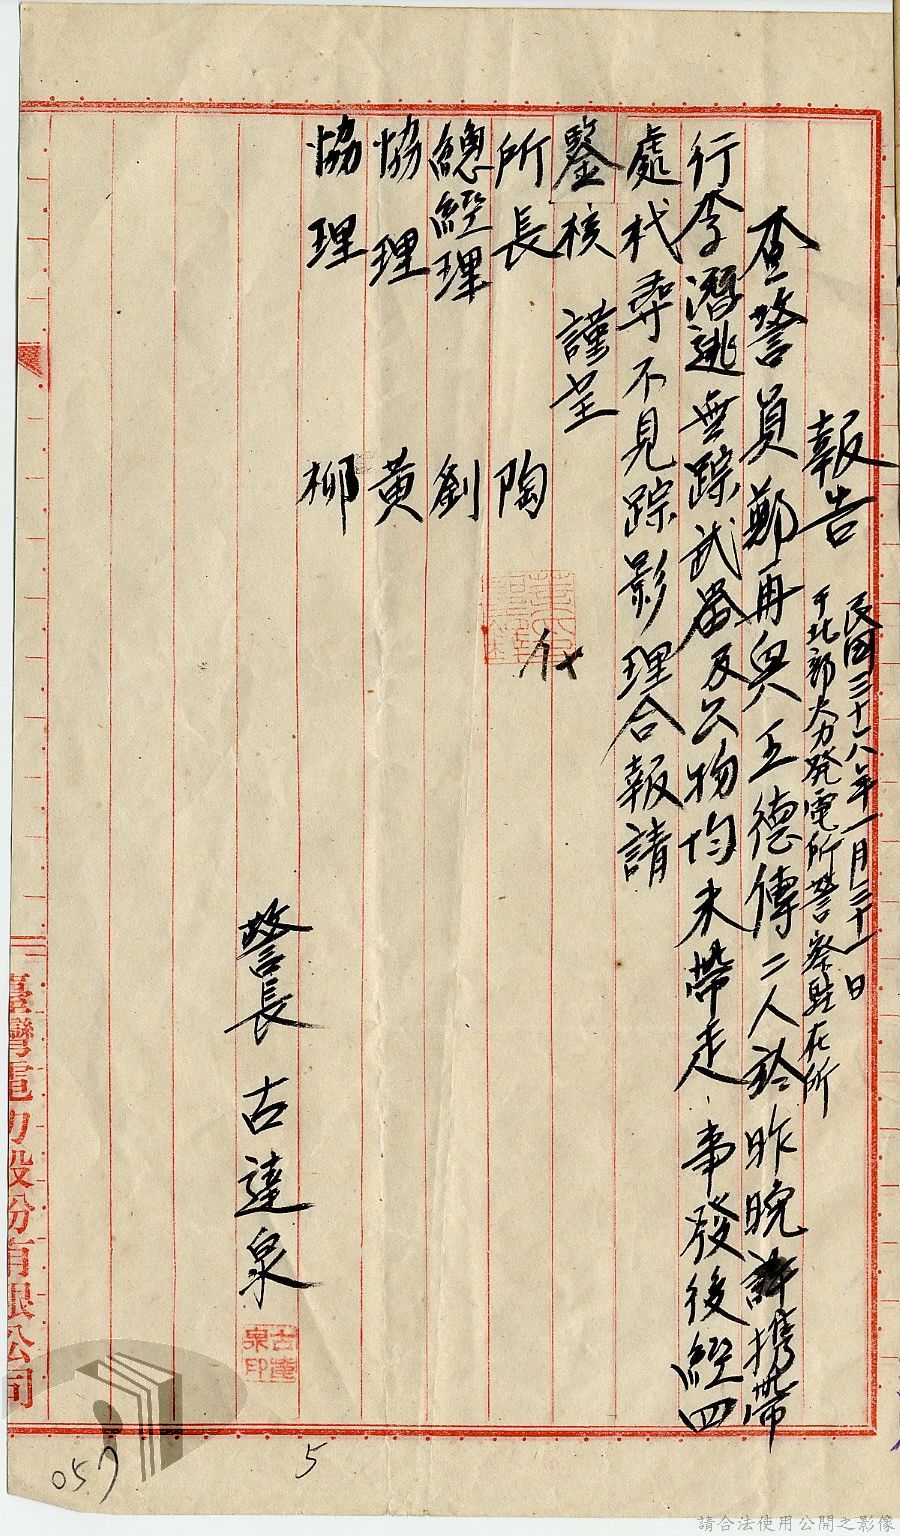 報告
民國三十八年一月三十一日
于北部火力發電所警察駐在所
查警員鄭再與王德傳二人於昨晚携帶
行李潛逃無踪武器及公物均未帶走事發後經四
處找尋不見踪影理合報請
鑒核　謹呈
所長　陶
總經理　劉
協理　黃
協理　柳
警長　古達泉
古達泉印
臺灣電力股份有限公司
5
057
請合法使用公開之影像